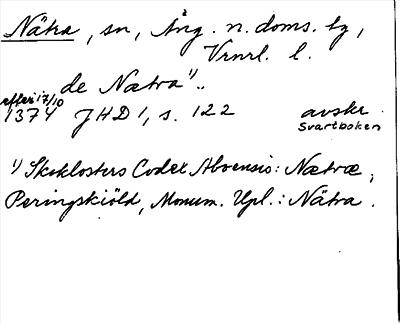 Nätra, sn, Ång. n. doms. bg,
Vrnrl. l.
de Nætra¹⁾..
efter 17/10
1374 JHD 1, s. 122 avskr.
Svartboken
¹⁾ Skoklosters Codex Aboensis: Nætræ,
Peringskiöld, Monum. Upl.: Nätra.